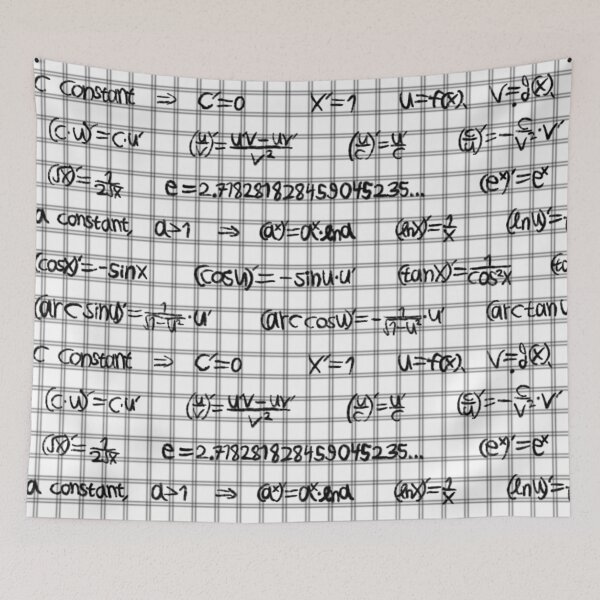 C constant ⇒ C'=0 X'=1 U=f(x), V=g(x),
(C·U)'=C·U' (U/V)'=(U'V-UV')/V² (U/C)'=U'/C (C/U)'=-C/V²·V'
(√x)'=1/(2√x) e=2.718281828459045235... (eˣ)'=eˣ
a constant, a>1 ⇒ (aˣ)'=aˣ·lna (lnx)'=1/x (lnU)'=
(cosx)'=-sinx (cosU)'=-sinU·U' (tanx)'=1/cos²x
(arcsinU)'=1/√(1-U²)·U' (arccosU)'=-1/√(1-U²)·U' (arctanU
C constant ⇒ C'=0 X'=1 U=f(x), V=g(x),
(C·U)'=C·U' (U/V)'=(U'V-UV')/V² (U/C)'=U'/C (C/U)'=-C/V²·V'
(√x)'=1/(2√x) e=2.718281828459045235... (eˣ)'=eˣ
a constant, a>1 ⇒ (aˣ)'=aˣ·lna (lnx)'=1/x (lnU)'=